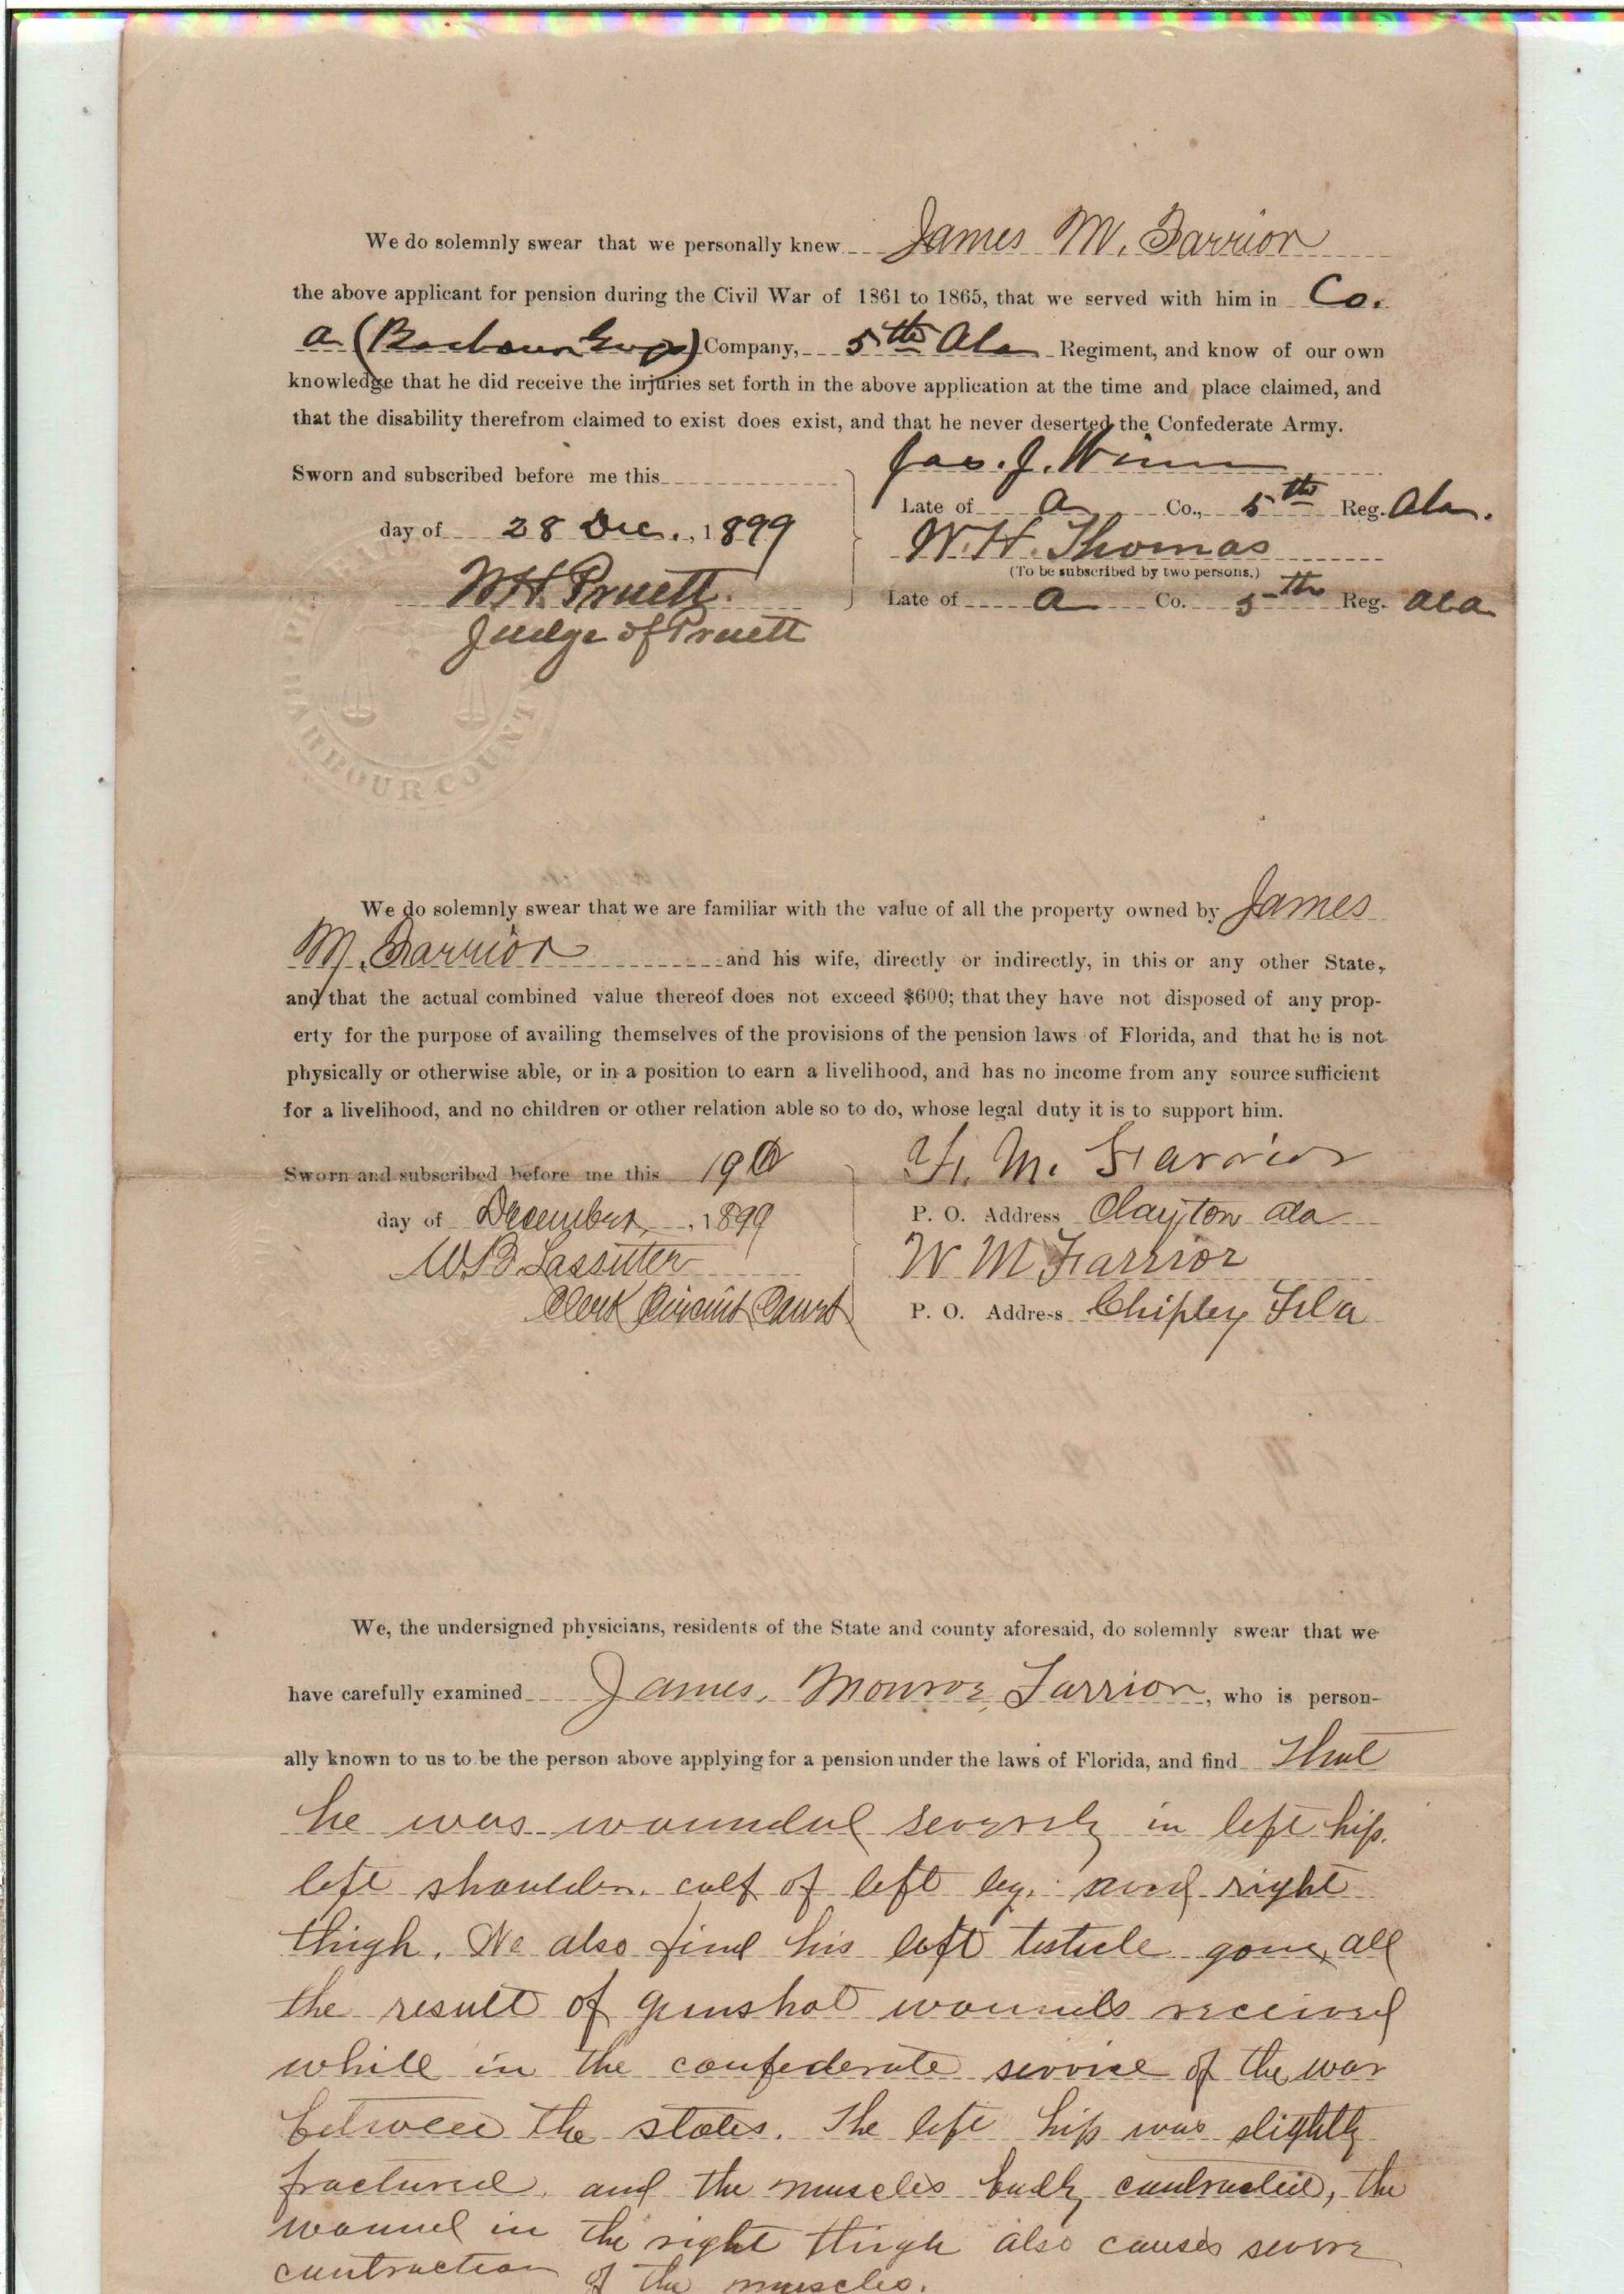 We do solemnly swear that we personally knew James M. Farrior
the above applicant for pension during the Civil War of 1861 to 1865, that we served with him in Co.
A (Barbour Grays) Company, 5th Ala Regiment, and know of our own
knowledge that he did receive the injuries set forth in the above application at the time and place claimed, and
that the disability therefrom claimed to exist does exist, and that he never deserted the Confederate Army.
Sworn and subscribed before me this
day of 28 Dec., 1899
W H. Pruett
Judge of
Jas. J. Winn
Late of A Co., 5th Reg. Ala.
W. H. Thomas
(To be subscribed by two persons.)
Late of A Co. 5th Reg. Ala
BARBOUR COUNTY
We do solemnly swear that we are familiar with the value of all the property owned by James
M. Farrior and his wife, directly or indirectly, in this or any other State,
and that the actual combined value thereof does not exceed $600; that they have not disposed of any prop-
erty for the purpose of availing themselves of the provisions of the pension laws of Florida, and that he is not
physically or otherwise able, or in a position to earn a livelihood, and has no income from any source sufficient
for a livelihood, and no children or other relation able so to do, whose legal duty it is to support him.
Sworn and subscribed before me this 19th
day of December, 1899
W B. Lassitter
Clerk Circuit Court
H. M. Farrior
P. O. Address Clayton Ala
W M Farrior
P. O. Address Chipley Fla
We, the undersigned physicians, residents of the State and county aforesaid, do solemnly swear that we
have carefully examined James, Monroe, Farrior, who is person-
ally known to us to be the person above applying for a pension under the laws of Florida, and find That
he was wounded severely in left hip.
left shoulder. calf of left leg. and right
thigh. We also find his left testicle gone, all
the result of gunshot wounds received
while in the confederate service of the war
between the states. The left hip was slightly
fractured, and the muscles badly contracted, the
wound in the right thigh also causes severe
contraction of the muscles.